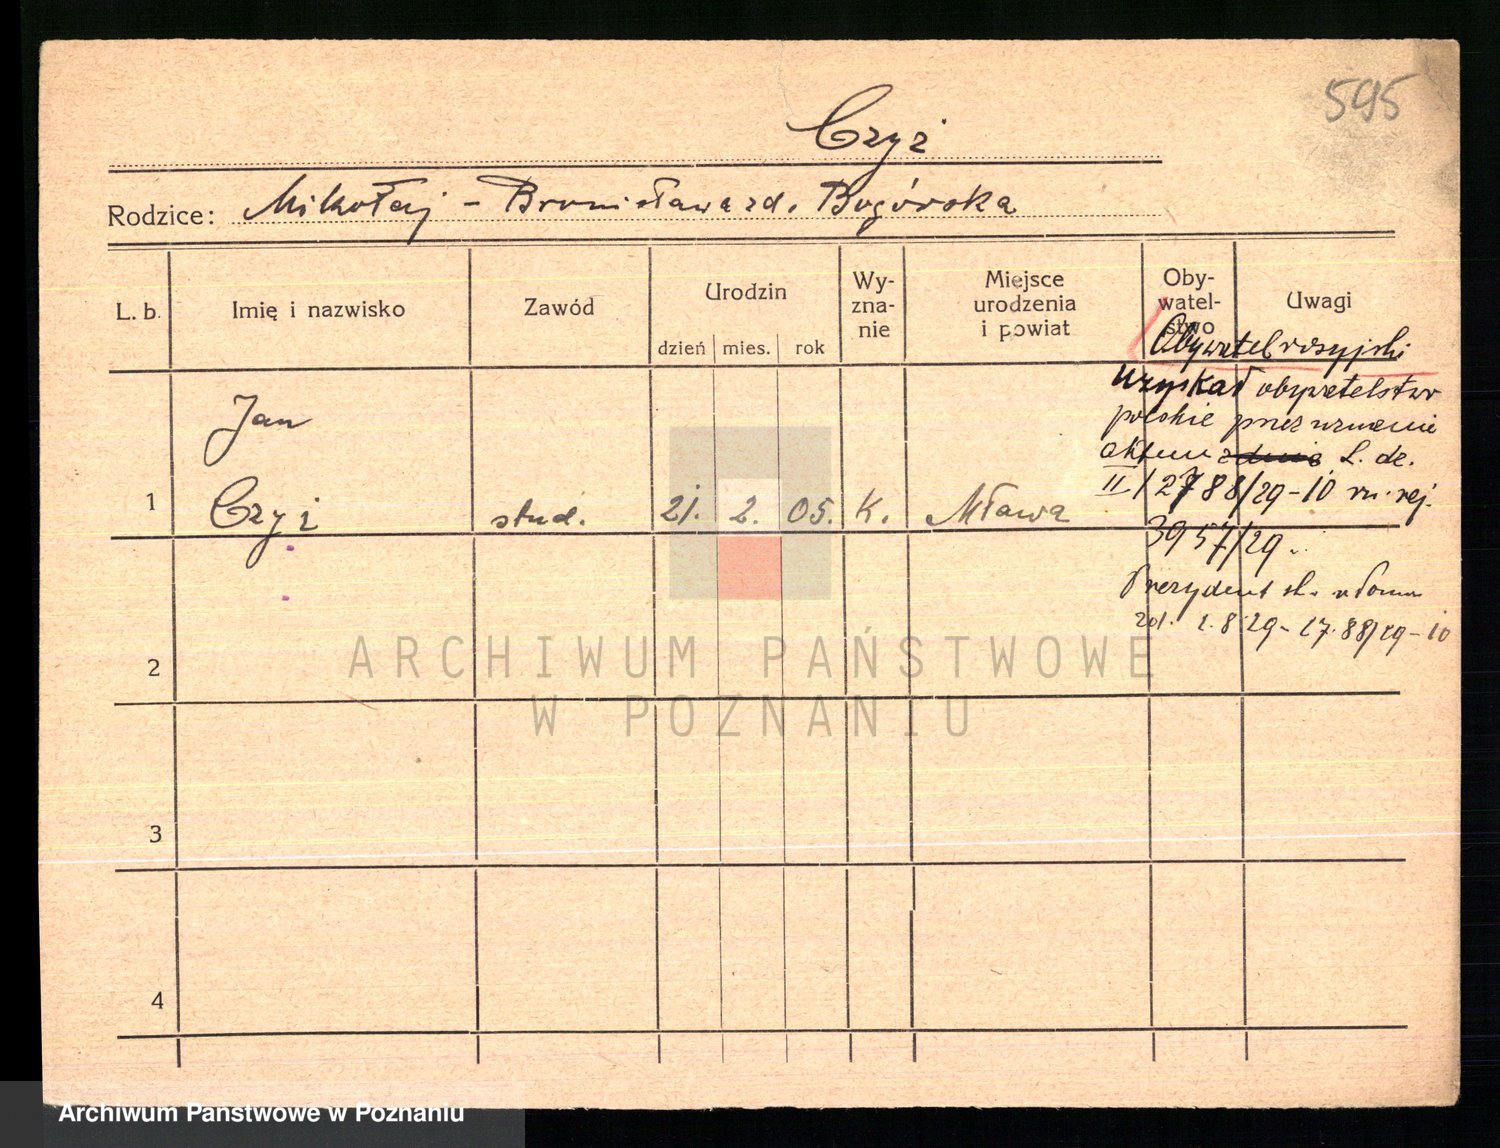 595
Czyż
Rodzice: Mikołaj - Bronisława zd. Bogórska
L. b.
Imię i nazwisko
Zawód
Urodzin
dzień mies. rok
Wy-
zna-
nie
Miejsce
urodzenia
i powiat
Oby-
watel-
stwo
Uwagi
Obywatel rosyjski
Uzyskał obywatelstwo
polskie przez uznanie
aktem L. dz.
II/2788/29-10 rej.
3957/29
Prezydent st. m
zał. 1.8.29 - 27.88/29-10
1
Jan
Czyż
stud.
21. 2. 05.
K.
Mława
2
3
4
ARCHIWUM PAŃSTWOWE
W POZNANIU
Archiwum Państwowe w Poznaniu